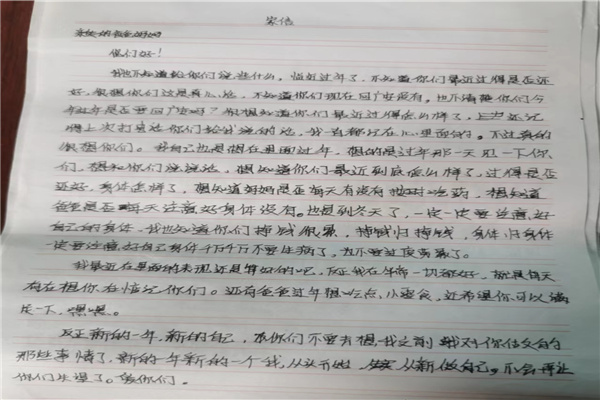 家信
亲爱的爸爸妈妈
你们好！
我也不知道给你们说些什么，临近过年了，不知道你们最近过得是否还
好。很想你们这是真心话，不知道你们现在回广安没有。也不清楚你们今
年过年是否要回广安吗？很想知道你们最近过得怎么样了，还记
得上次打电话你们给我说的话，我有都记在心里面的。不过真的
很想你们。我自己也是想在里面过年，想的是过年那一天见一下你
们，想和你们说说话，想知道你们最近到底怎么样了，过得是否
还好，身体怎样了，想知道妈妈是否每天有没有按时吃药，想知道
爸爸是否每天注意好身体没有。也是到冬天了，一定一定要注意好
自己的身体。我也知道你们挣钱很累，挣钱归挣钱，身体归身体
一定要注意好自己身体千万千万不要生病了，也不要过度劳累了。
我最近在里面的表现还是算好的吧，反正我在所一切都好，就是每天
有在想你在惦记你们。还有爸爸过年想吃点小零食，还希望你可以满
足一下，嘿嘿。
反正新的一年，新的自己，你们不要去想我之前我对你做的
那些事情了，新的一年新的一个我，从头开始，从新做自己，不会再让
你们失望了。爱你们。